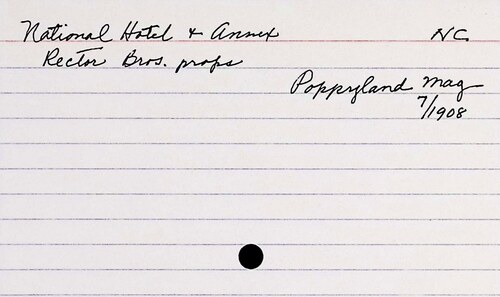 National Hotel & Annex NC
Rector Bros. props
Poppyland Mag
7/1908